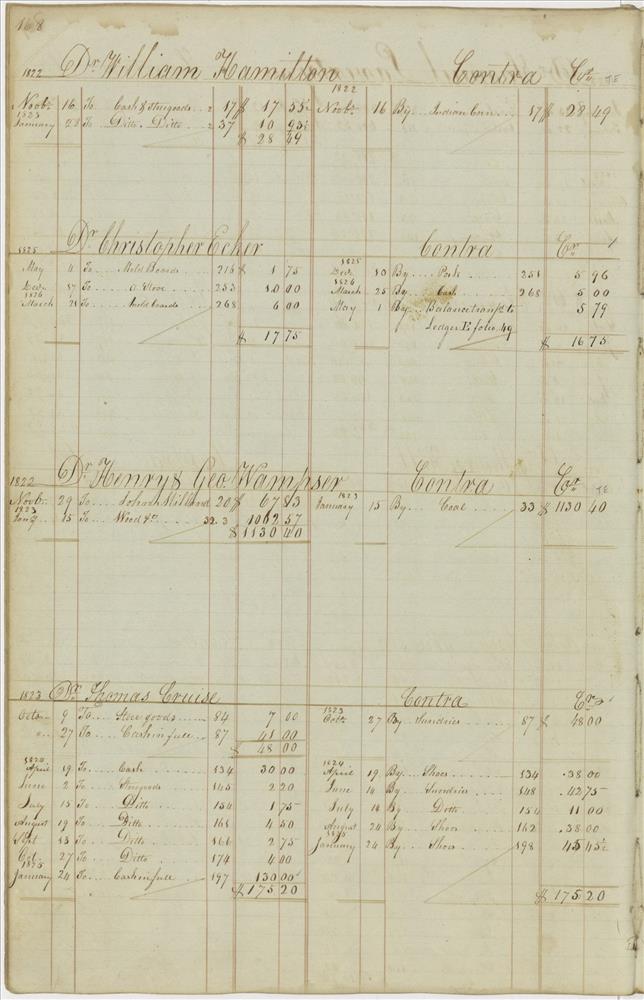 168
1822 Dr William Hamilton Contra Cr
1822
Novbr 16 To Cash & Storegoods 2 17 $ 17 55½ Novbr 16 By Indian Corn 17 $ 28 49
1823
January 28 To Ditto Ditto 2 37 10 93½
$ 28 49
1825 Dr Christopher Ecker Contra Cr
1825
May 4 To Mold Boards 216 $ 1 75 Decr 10 By Pork 251 5 96
1826
Decr 17 To a Stove 253 10 00 March 25 By Cash 268 5 00
1826
March 21 To Mold boards 268 6 00 May 1 By Balance transfd to 5 79
Ledger E folio 49
$ 17 75 $ 16 75
1822 Dr Henry & Geo Wampser Contra Cr
1823
Novbr 29 To 20 $ 67 83 January 15 By Coal 33 $ 1130 40
1823
Jany 15 To Wood &c 32.3 1062 57
$ 1130 40
1823 Dr Thomas Cruise Contra Cr
1823
Octo 9 To Store goods 84 7 00 Octr 27 By Sundries 87 $ 48 00
" 27 To Cash in full 87 41 00
$ 48 00
1824
April 19 To Cash 134 30 00 April 19 By Shoes 134 38 00
June 2 To Storegoods 145 2 20 June 14 By Sundries 148 42 75
July 15 To Ditto 154 1 75 July 18 By Ditto 154 11 00
August 19 To Ditto 161 4 50 August 24 By Shoes 162 38 00
1825
Sept 13 To Ditto 166 2 75 January 24 By Shoes 198 45 45½
Oct 27 To Ditto 174 4 00
1825
January 24 To Cash in full 197 130 00
$ 175 20 $ 175 20